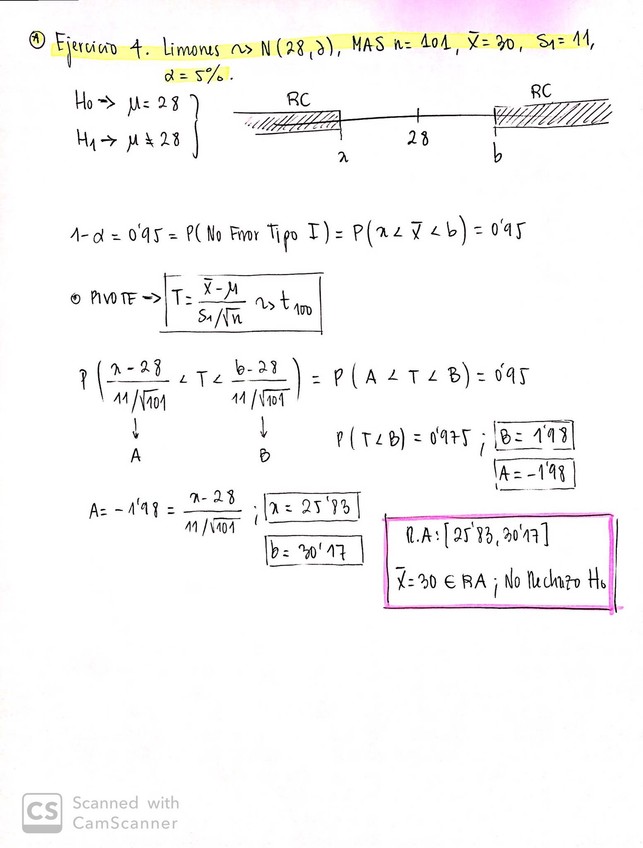 ⊛ Ejercicio 4. Limones ~> N(28,∂), MAS n=101, x̄=30, S₁=11,
α=5%.
H₀ -> μ=28
H₁ -> μ≠28
RC
RC
a
28
b
1-α = 0'95 = P(No Error Tipo I) = P(a < x̄ < b) = 0'95
• PIVOTE -> T = (x̄-μ)/(S₁/√n) ~> t₁₀₀
P((a-28)/(11/√101) < T < (b-28)/(11/√101)) = P(A < T < B) = 0'95
↓ ↓
A B
P(T<B) = 0'975 ; B = 1'98
A = -1'98
A = -1'98 = (a-28)/(11/√101) ; a = 25'83
b = 30'17
R.A: [25'83, 30'17]
x̄=30 ∈ RA ; No Rechazo H₀
CS Scanned with
CamScanner